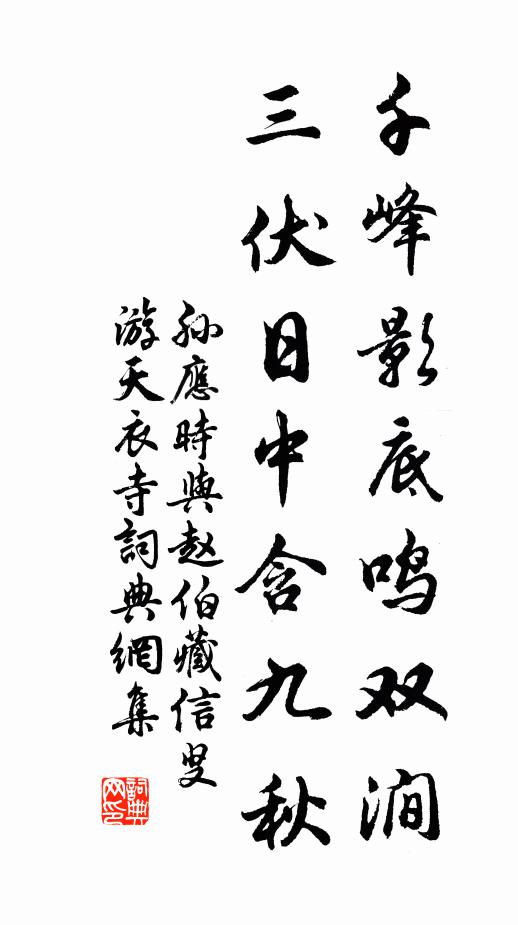 千峰影底鸣双涧
三伏日中含九秋
孙應時與赵伯藏信叟
游天衣寺詞典網集
詞典網印